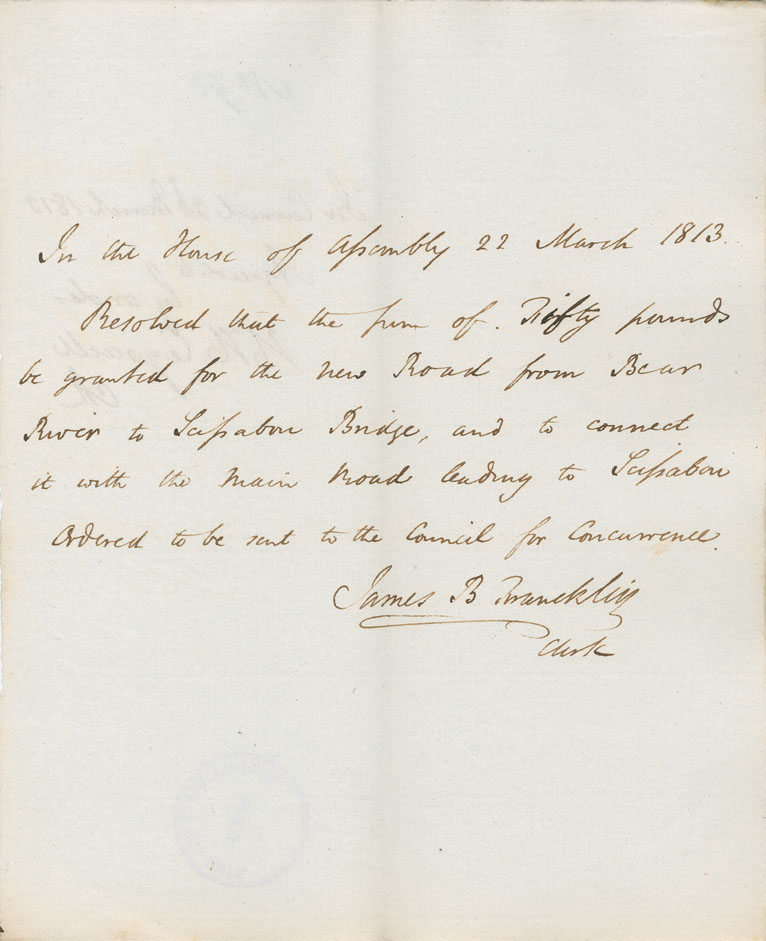 In the House of Assembly 22 March 1813.
Resolved that the sum of. Fifty pounds
be granted for the new Road from Bear
River to Scissabou Bridge, and to connect
it with the main road leading to Scissabou
Ordered to be sent to the Council for Concurrence.
James B Francklin
Clerk